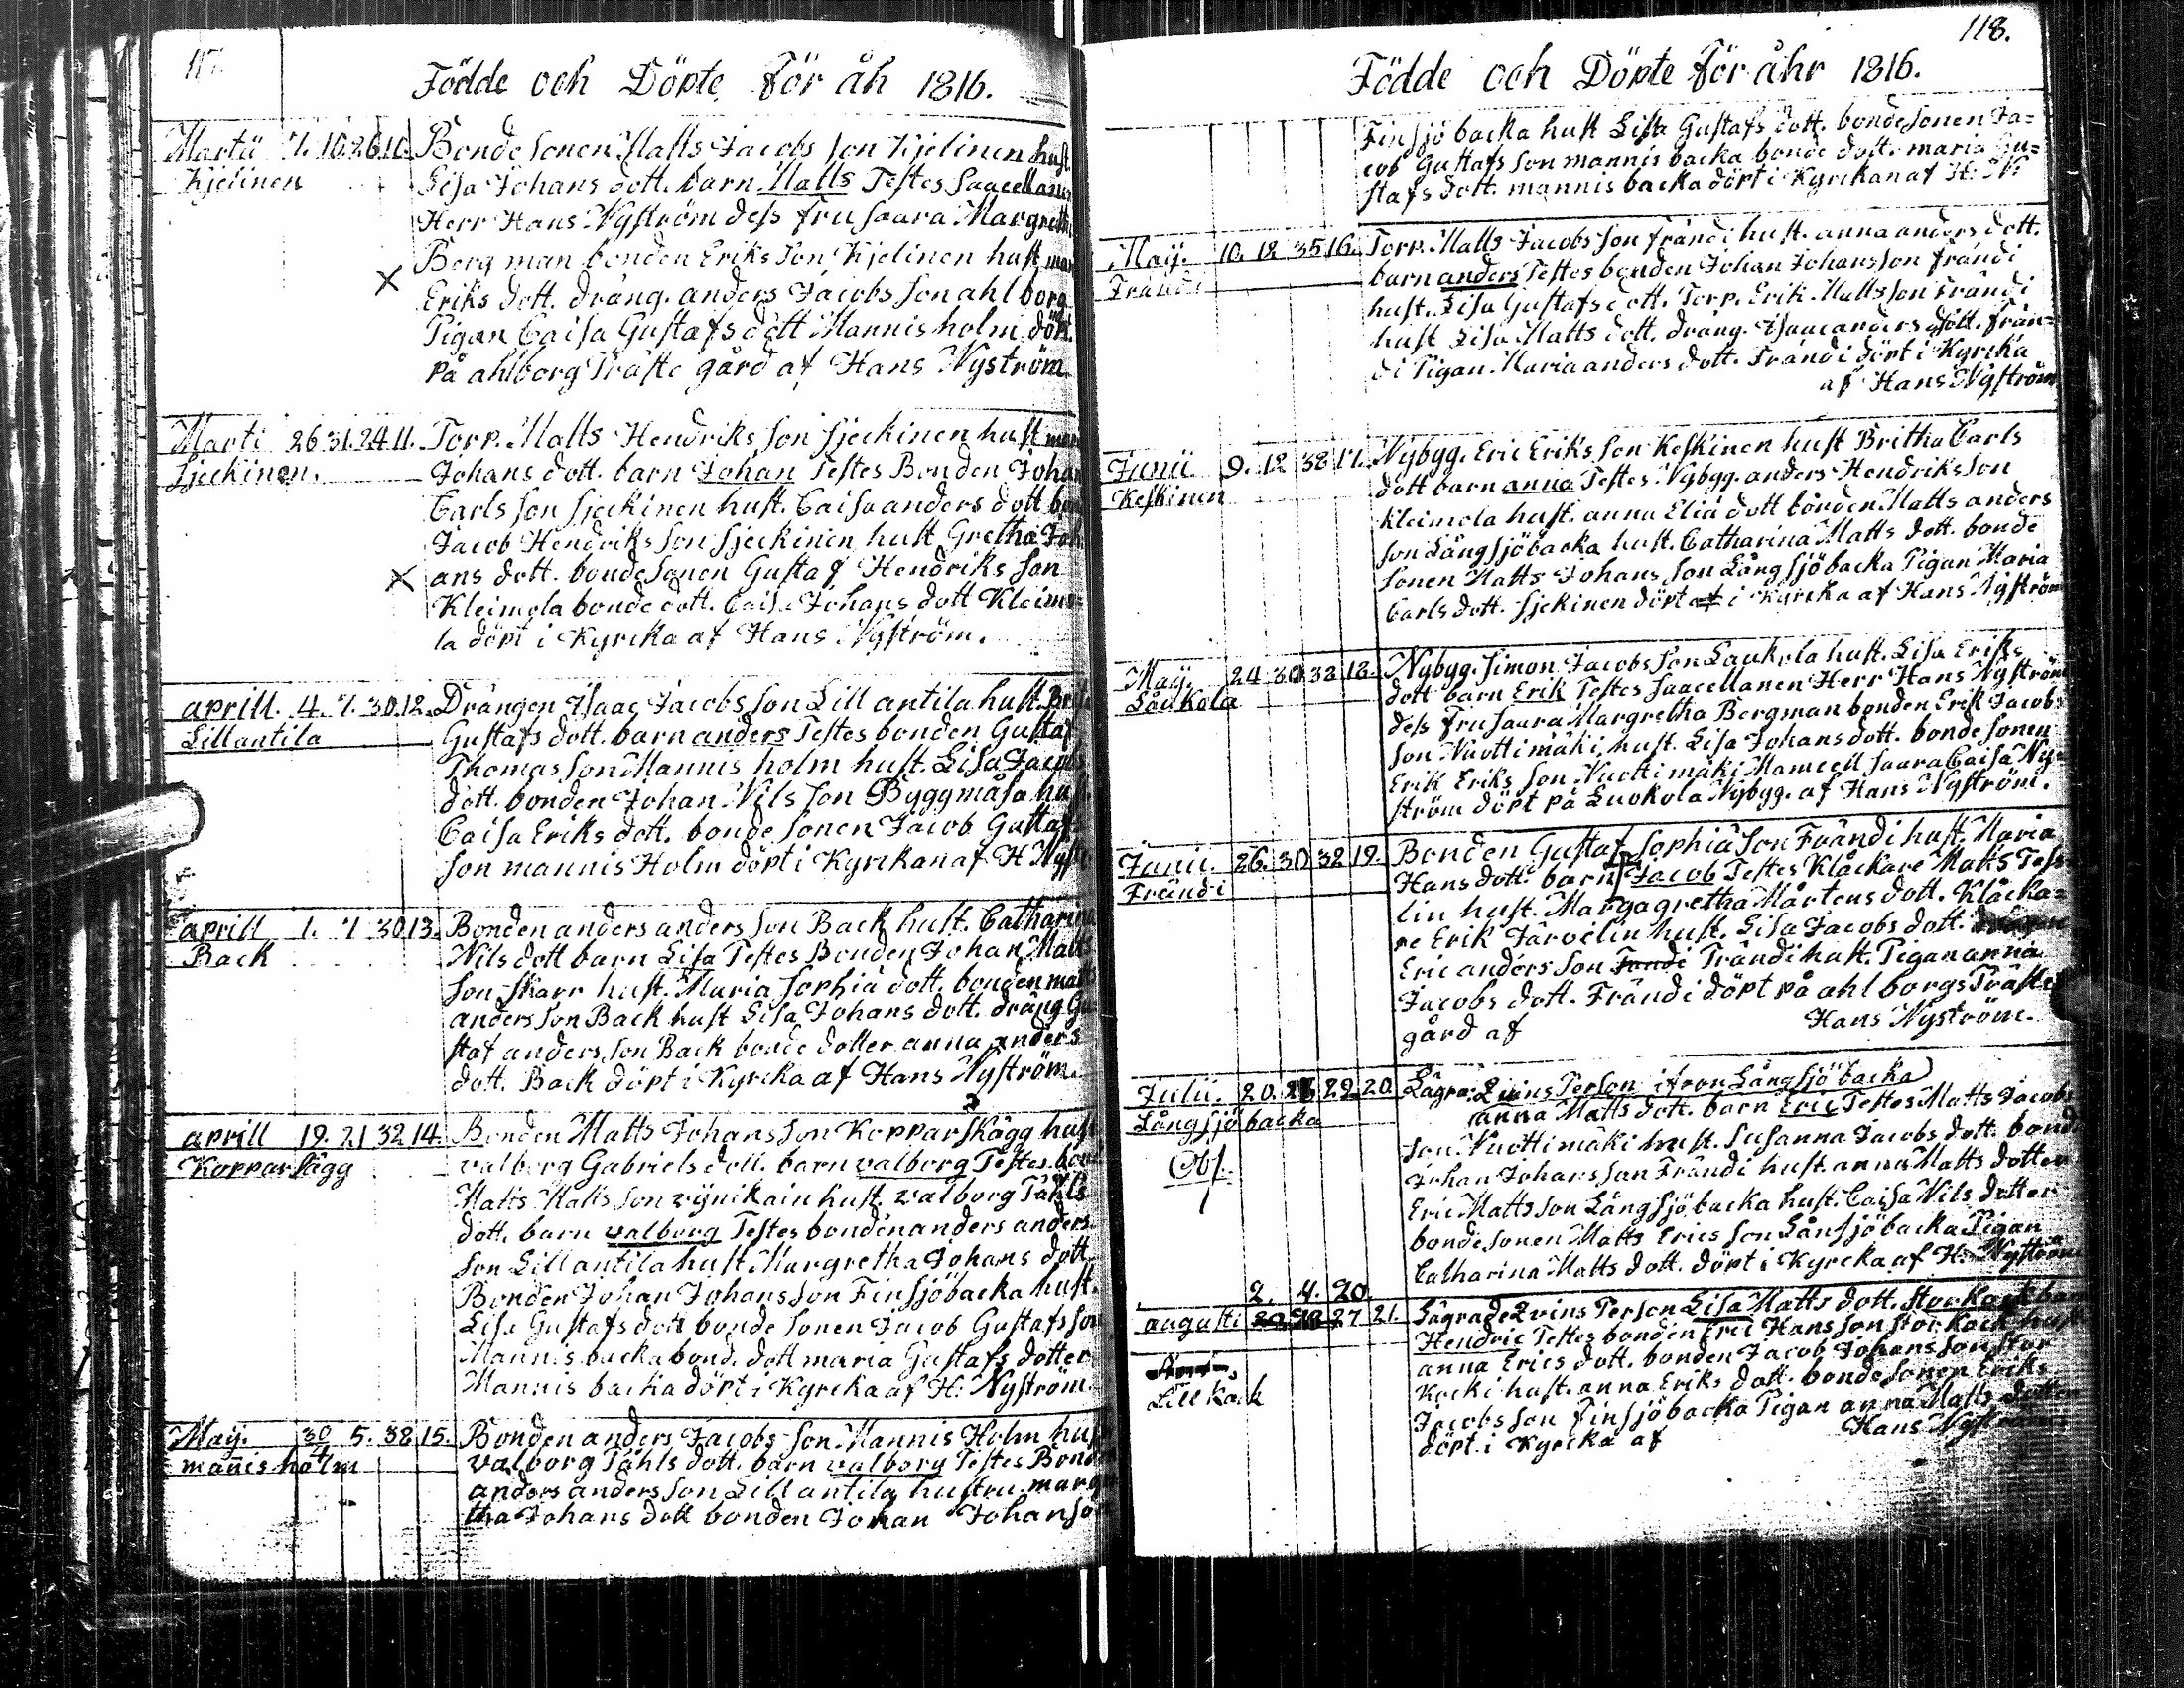 117.
Födde och Döpte för åh 1816.
Martii 7. 10. 26. 10. Bonde sonen Matts Jacobs son Kjelinen hust.
Kjelinen Lisa Johans dott. barn Matts Testes Saacellanen
Herr Hans Nyström dess fru Saara Margreth
Berg man bonden Eriks Son Kjelinen hust
Eriks dott. dräng. anders Jacobs son ahlborg
Pigan Caisa Gustafs dott Mannis holm döpt
på ahlborg Präste gård af Hans Nyström
Marti 26 31. 24. 11. Torp. Matts Hendriks son Sjeckinen hust
Sjeckinen. Johans dott. barn Johan Testes Bonden Johan
Carls son Sjeckinen hust. Caisa anders dott
Jacob Hendriks son Sjeckinen hust Gretha Joh
ans dott. bonde sonen Gustaf Hendriks son
Kleimola bonde dott. Caisa Johans dott Kleimo=
la döpt i Kyrcka af Hans Nyström.
aprill. 4. 7. 30. 12. Drängen Isaac Jacobs son Lill antila hust.
Lillantila Gustafs dott. barn anders Testes bonden Gustaf
Thomas son Mannis holm hust. Lisa Jacobs
dott. bonden Johan Nils son Byggmäsa hust
Caisa Eriks dott. bonde sonen Jacob Gustaf
son mannis Holm döpt i Kyrckan af H Nyst
aprill 1. 7 30 13. Bonden anders anders son Back hust. Catharina
Back Nils dott barn Lisa Testes Bonden Johan Matts
son Skarr hust. Maria Sophia dott. bonden matts
anders son Back hust Lisa Johans dott. dräng Gu
staf anders son Back bonde dotter anna anders
dott. Back döpt i Kyrcka af Hans Nyström.
aprill 19. 21 32 14. Bonden Matts Johans son Kopparskägg hust
Kopparskägg valborg Gabriels dott. barn valborg Testes
Matts Matts son vijnikain hust. valborg Påhls
dott. barn valborg Testes bonden anders anders
son Lillantila hust Margretha Johans dott.
Bonden Johan Johans son Finsjöbacka hust.
Lisa Gustafs dott bonde sonen Jacob Gustafs son
Mannis backa bond. dott maria Gustafs dotter
Mannis backa döpt i Kyrcka af H: Nyström.
Maij. 30 5. 38 15. Bonden anders Jacobs son Mannis Holm hust
mannis holm valborg Påhls dott. barn valborg Testes Bond
anders anders son Lill antila hustru marg
tha Johans dott bonden Johan Johanso
118.
Födde och Döpte för åhr 1816.
Finsjö backa hust Lisa Gustafs dott. bonde sonen Ja=
cob Gustafs son mannis backa bonde dott. maria Gu=
stafs dott. mannis backa döpt i Kyrckan af H: N:
Maij. 10. 12 35 16. Torp. Matts Jacobs son frändi hust. anna anders dott.
Frändi barn anders Testes bonden Johan Johans son frändi
hust. Lisa Gustafs dott. Torp. Erik Matts son Frändi
hust Lisa Matts dott. dräng. Isaac anders dott. frän=
di Pigan Maria anders dott. Frändi döpt i Kyrcka
af Hans Nyström
Junii 9. 12 38 17. Nybygg. Eric Eriks son Keskinen hust Britha Carls
Keskinen dott barn anna Testes Nybygg. anders Hendriks son
Kleimola hust. anna Eliä dott bonden Matts anders
son Långsjöbacka hust. Catharina Matts dott. bonde
sonen Matts Johans son Lång sjöbacka Pigan Maria
Carls dott. Sjekinen döpt af i Kyrcka af Hans Nyström
Maij. 24 30 32 18. Nybyg. Simon Jacobs son Laukola hust. Lisa Eriks
Låukola dott barn Erik Testes Saacellanen Herr Hans Nyström
dess fru Saara Margretha Bergman bonden Erik Jacobs
son Nuottimäki hust. Lisa Johans dott. bonde sonen
Erik Eriks son Nuottimäki Mamcell Saara Caisa Ny=
ström döpt på Luokola Nybyg. af Hans Nyström.
Junii. 26. 30 32 19. Bonden Gustaf Sophiä son Frändi hust. Maria
Frändi Hans dott. barn Jacob Testes Klåckare Matts Tess
lin hust. Margagretha Mårtens dott. Klåcka=
re Erik Järvelin hust. Lisa Jacobs dott.
Eric anders son Frändi hust. Pigan anna
Jacobs dott. Frändi döpt på ahlborgs Präste
gård af Hans Nyström.
Julii. 20. 29. 20. Lägra: Qvins Person ifron Långsjö backa
Långsjö backa anna Matts dott. barn Eric Testes Matts Jacobs
Obs. son Nuottimäki hust. Susanna Jacobs dott. bond
Johan Johans son Frändi hust anna Matts dotter
Eric Matts son Långsjöbacka hust. Caisa Nils dotter
bonde sonen Matts Erics son Lånsjöbacka Pigan
Catharina Matts dott. döpt i Kyrcka af H: Nyström
2. 4. 20.
augusti 27 21. Lägrade Qvins Person Lisa Matts dott. Storkock
Lill Kock Hendric Testes bonden Eric Hans son stor kock hust
anna Erics dott. bonden Jacob Johans son stor
Kocki hust. anna Eriks dott. bonde sonen Eriks
Jacobs son finsjöbacka Pigan anna Matts dotter
döpt i Kyrcka af Hans Nyst